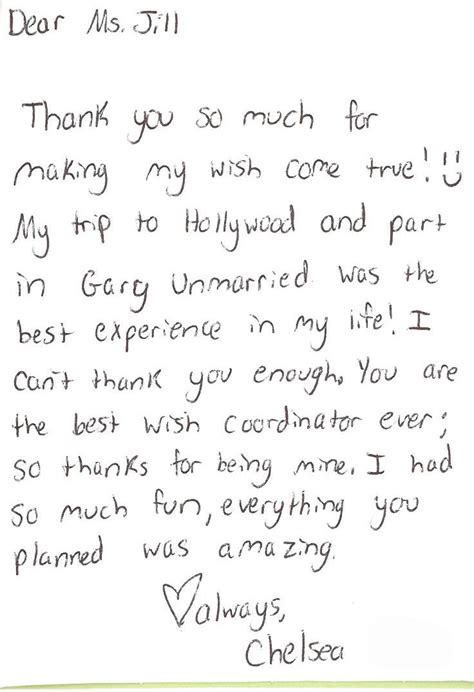 Dear Ms. Jill
Thank you so much for
making my wish come true! :)
My trip to Hollywood and part
in Gary Unmarried was the
best experience in my life! I
can't thank you enough. You are
the best wish coordinator ever;
so thanks for being mine. I had
so much fun, everything you
planned was amazing.
♡always,
Chelsea